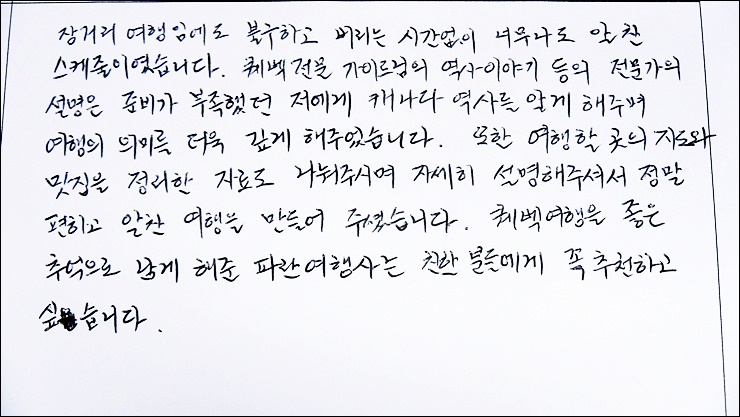 장거리 여행임에도 불구하고 버리는 시간없이 너무나도 알찬
스케줄이였습니다. 퀘벡전문 가이드님의 역사이야기 등의 전문가의
설명은 준비가 부족했던 저에게 캐나다 역사를 알게 해주며
여행의 의미를 더욱 깊게 해주었습니다. 또한 여행할 곳의 지도와
맛집을 정리한 자료도 나눠주시며 자세히 설명해주셔서 정말
편하고 알찬 여행을 만들어 주셨습니다. 퀘벡여행을 좋은
추억으로 남게 해준 파란여행사는 친한 분들에게 꼭 추천하고
싶습니다.